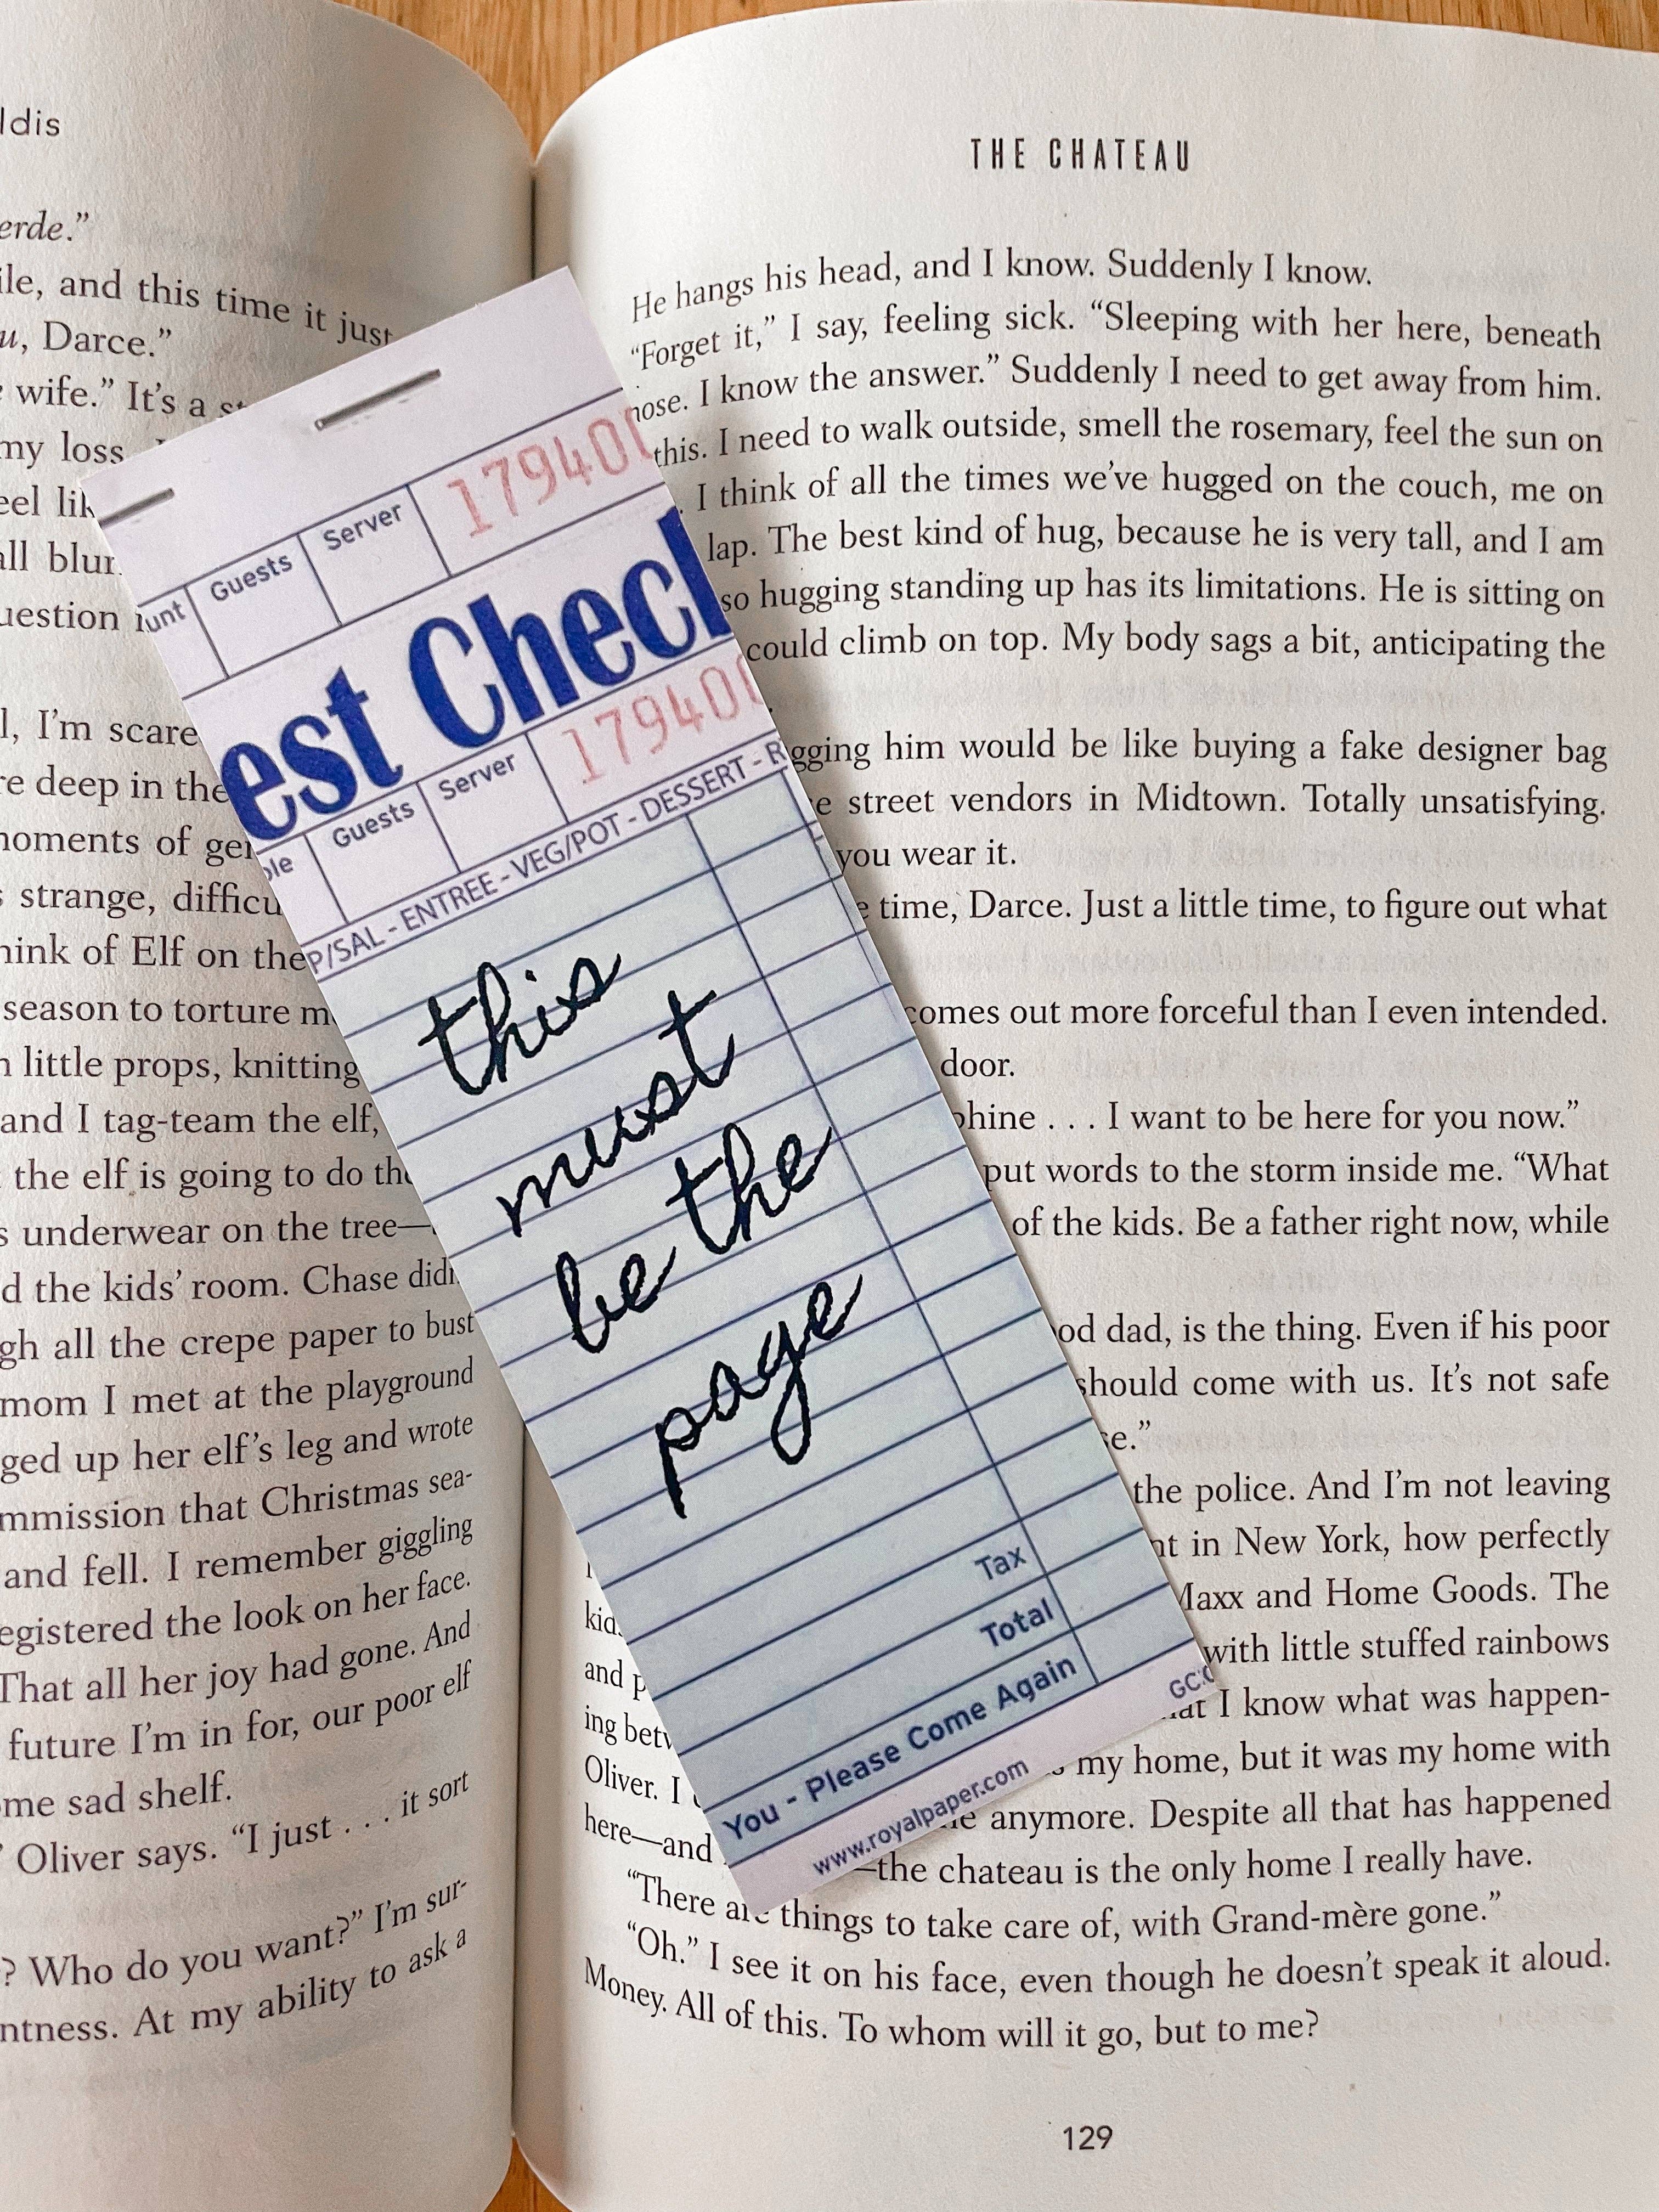 ldis
erde.”
ile, and this time it just
u, Darce.”
wife.” It’s a
my loss
eel
all
uestion
I’m scare
re deep in the
moments of
strange,
hink of Elf on the
season to torture
little props, knitting
and I tag-team the elf,
the elf is going to do
underwear on the tree—
d the kids’ room. Chase
gh all the crepe paper to bust
mom I met at the playground
ged up her elf’s leg and wrote
mmission that Christmas sea-
and fell. I remember giggling
egistered the look on her face.
That all her joy had gone. And
future I’m in for, our poor elf
me sad shelf.
” Oliver says. “I just . . . it sort
? Who do you want?” I’m sur-
ntness. At my ability to ask a
Guests Server 179401
est Check
Guests Server 179401
P/SAL - ENTREE - VEG/POT - DESSERT -
this
must
be the
page
Tax
Total
You - Please Come Again
www.royalpaper.com
THE CHATEAU
He hangs his head, and I know. Suddenly I know.
“Forget it,” I say, feeling sick. “Sleeping with her here, beneath
nose. I know the answer.” Suddenly I need to get away from him.
this. I need to walk outside, smell the rosemary, feel the sun on
I think of all the times we’ve hugged on the couch, me on
lap. The best kind of hug, because he is very tall, and I am
so hugging standing up has its limitations. He is sitting on
could climb on top. My body sags a bit, anticipating the
gging him would be like buying a fake designer bag
e street vendors in Midtown. Totally unsatisfying.
you wear it.
time, Darce. Just a little time, to figure out what
comes out more forceful than I even intended.
door.
phine . . . I want to be here for you now.”
put words to the storm inside me. “What
of the kids. Be a father right now, while
od dad, is the thing. Even if his poor
should come with us. It’s not safe
se.”
the police. And I’m not leaving
nt in New York, how perfectly
Maxx and Home Goods. The
with little stuffed rainbows
I know what was happen-
my home, but it was my home with
anymore. Despite all that has happened
here—and —the chateau is the only home I really have.
“There are things to take care of, with Grand-mère gone.”
“Oh.” I see it on his face, even though he doesn’t speak it aloud.
Money. All of this. To whom will it go, but to me?
129